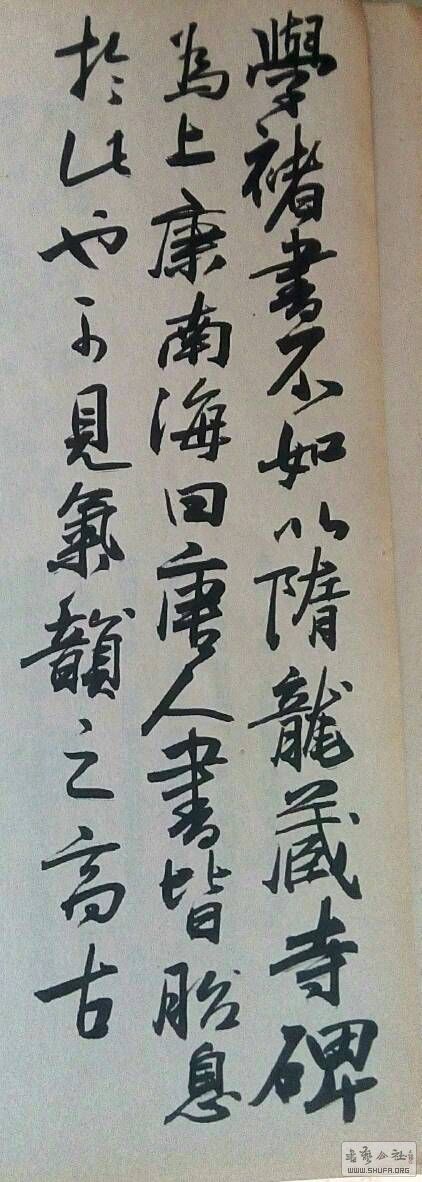 學褚書不如以隋龍藏寺碑
為上康南海曰唐人書皆胎息
於此也可見氣韻之高古
书艺公社
WWW.SHUFA.ORG